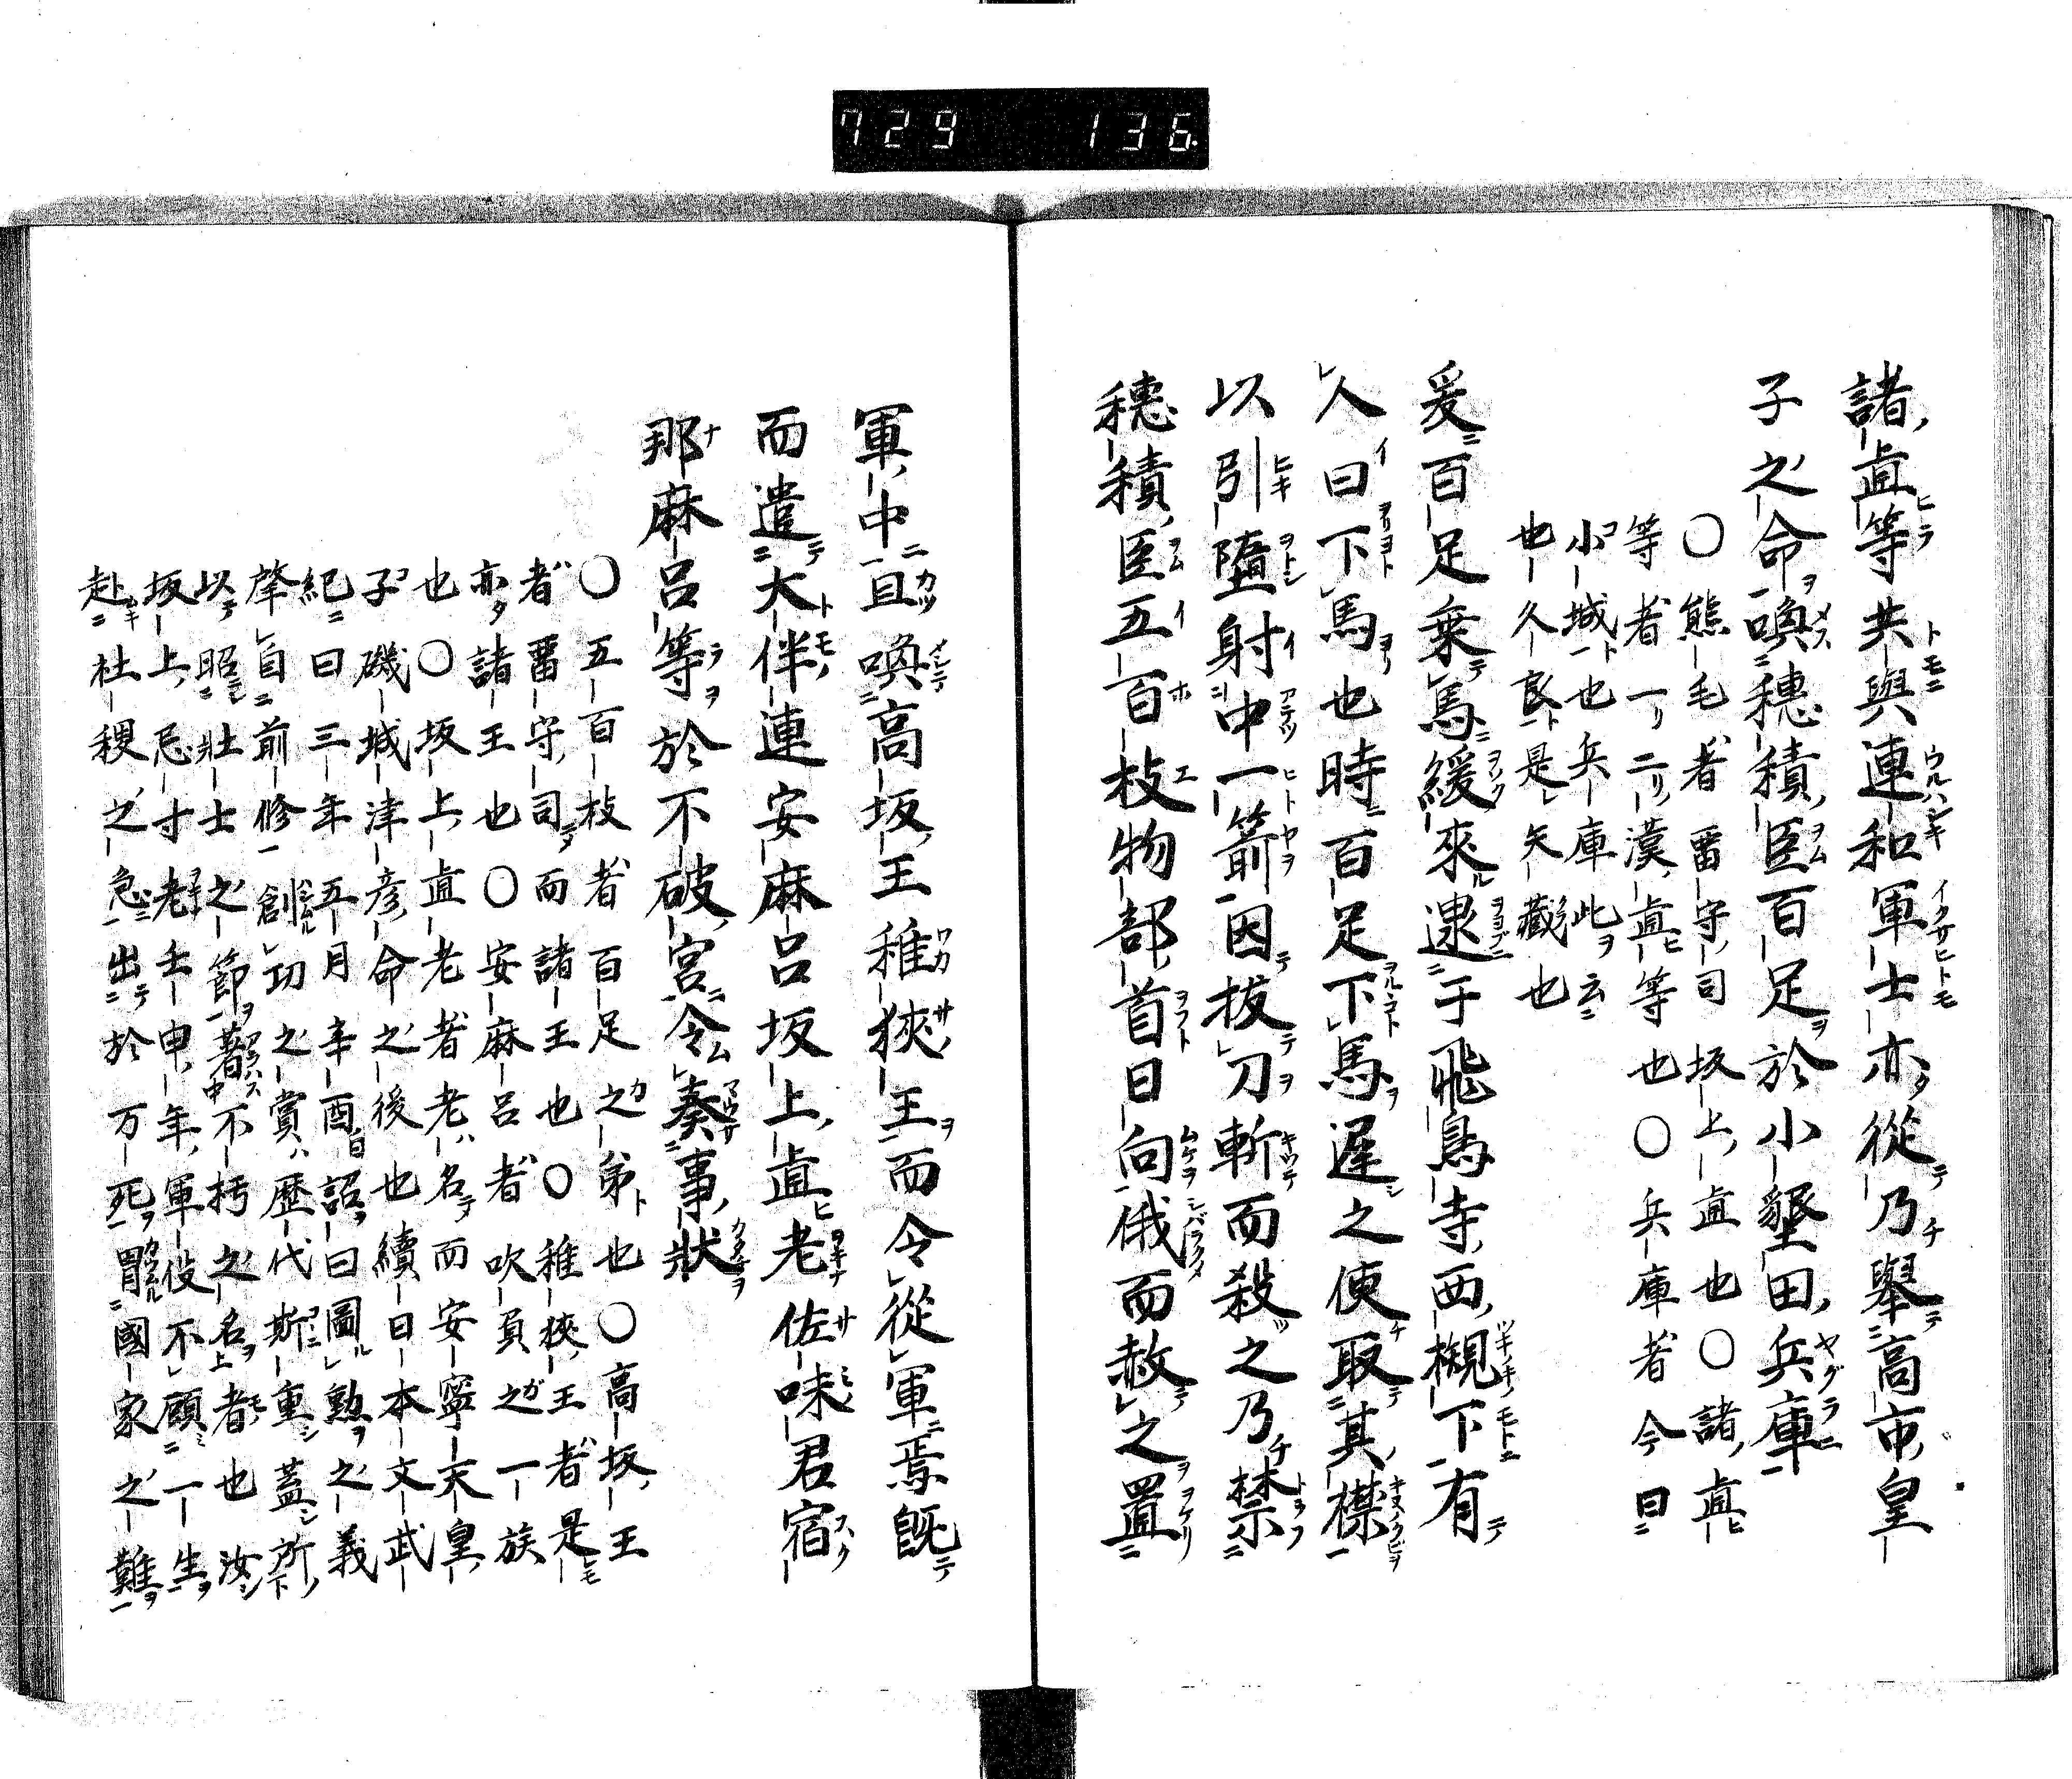 729 136
諸直等共與連和軍士亦從乃擧高市皇
子之命喚穗積臣百足於小墾田兵庫
〇熊毛者畱守司坂上直也〇諸直
等者一二漢直等也〇兵庫者今曰
小城也兵庫此云
也久良是矢藏也
爰百足乘馬緩來逮于飛鳥寺西槻下有
人曰下馬也時百足下馬遲之使取其襟
以引墮射中一箭因拔刀斬而殺之乃禁
穗積臣五百枝物部首日向俄而赦之置
軍中且喚高坂王稚狹王而令從軍焉既
而遣大伴連安麻呂坂上直老佐味君宿
那麻呂等於不破宮令奏事狀
〇五百枝者百足之弟也〇高坂王
者畱守司而諸王也〇稚狹王者是
亦諸王也〇安麻呂者吹負之一族
也〇坂上直老者老名而安寧天皇
子磯城津彦命之後也續日本文武
紀曰三年五月辛酉詔曰圖勲之義
肇自前修創功之賞歴代斯重蓋所
以昭壯士之節著不朽之名者也汝
坂上忌寸老壬申年軍役不顧一生
赴社稷之急出於万死冒國家之難